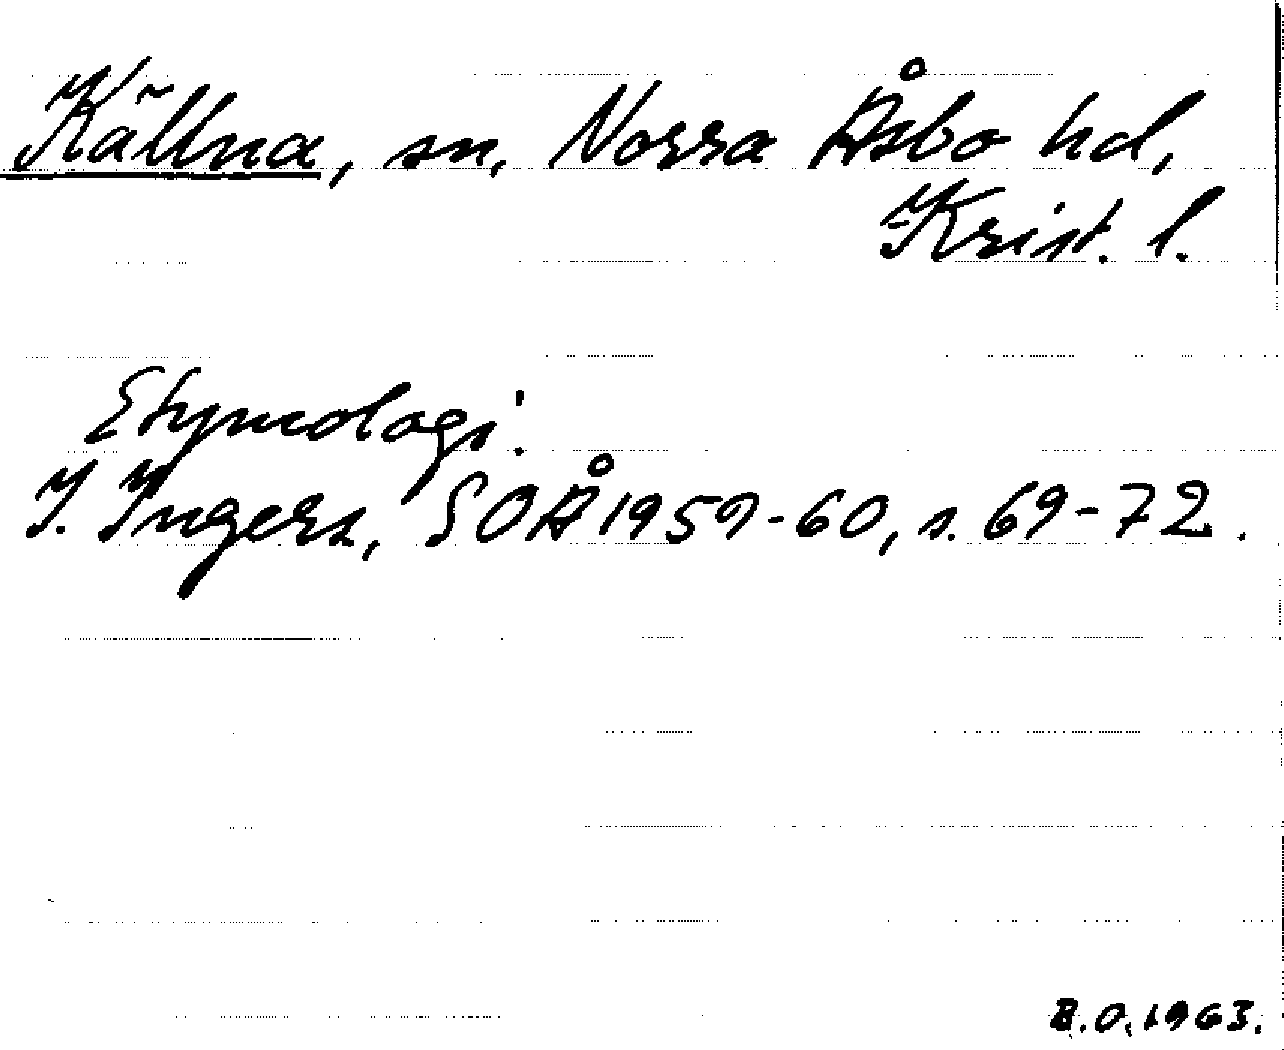 Källna, sn, Norra Åsbo hd,
Krist. l.
Etymologi:
I. Ingers, SOÅ 1959-60, s. 69-72.
B.O. 1963.